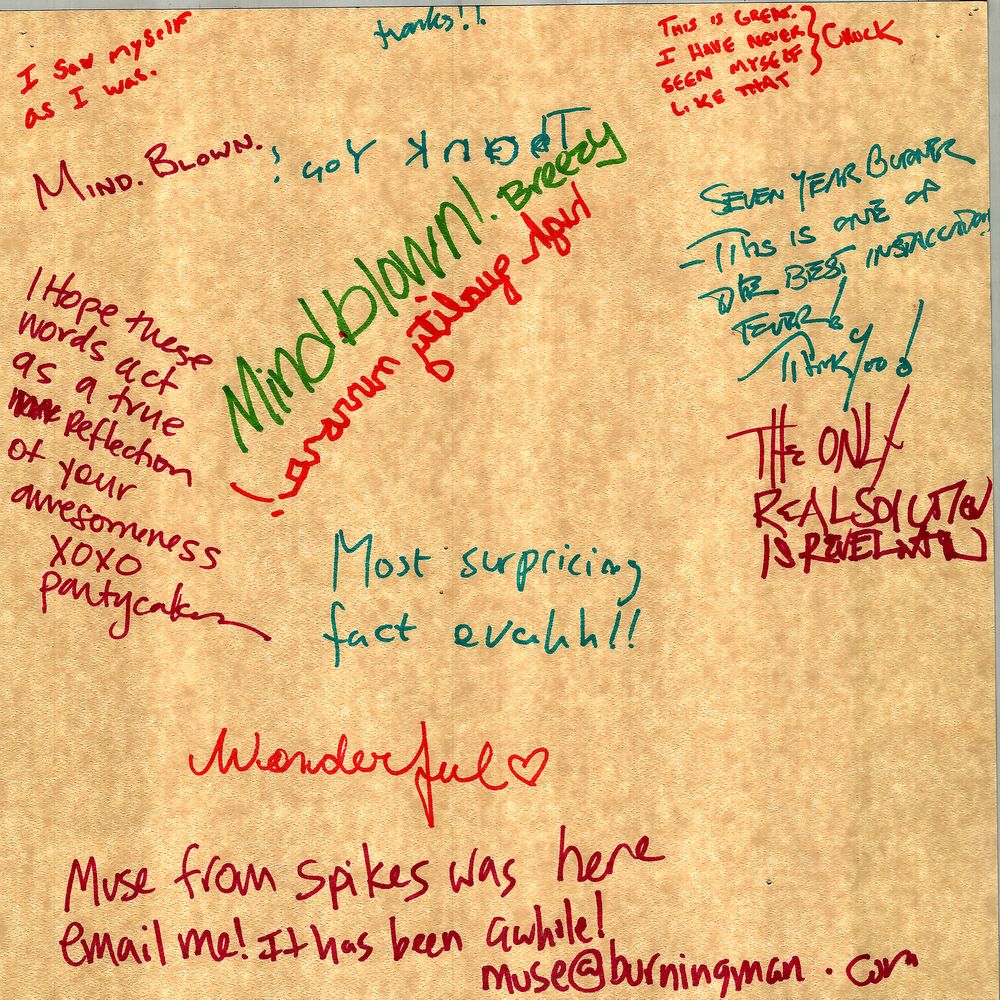 I saw myself
as I was.
thanks!!
THIS IS GREAT.
I HAVE NEVER
SEEN MYSELF
LIKE THAT
CHUCK
MIND. BLOWN.
Thank You!
Mindblown! Breezy
SEVEN YEAR BURNER
- THIS IS ONE OF
THE BEST
EVER!
Thank You!
I Hope these
words act
as a true
Reflection
of your
awesomeness
XOXO
Pantycakes
THE ONLY
REAL SOLUTION
IS REVELATION
Most surpricing
fact evahh!!
Wonderful ♡
Muse from Spikes was here
email me! It has been awhile!
muse@burningman.com